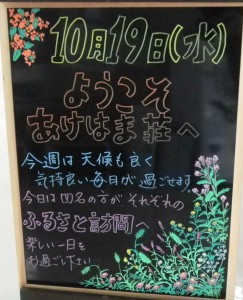 10月19日(水)
ようこそ
あけはま荘へ
今週は天候も良く
気持良い毎日が過ごせます
今日は四名の方がそれぞれの
ふるさと訪問
楽しい一日を
お過ごし下さい